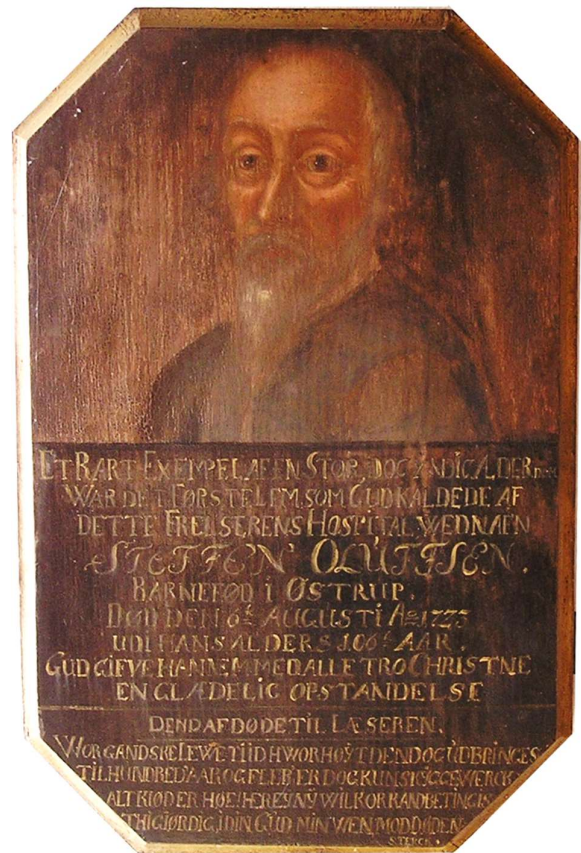 ET RART EXEMPEL AF EN STOR, DOG YNDIG ALDER
WAR DET FØRSTE LEM, SOM GUD KALDEDE AF
DETTE FRELSERENS HOSPITAL, WED NAFN
STEFFEN OLUFFSEN.
BARNEFØD I ØSTRUP.
DØD DEN 6te AUGUSTI Ao 1773
UDI HANS ALDERS 106te AAR.
GUD GIEVE HANNEM MED ALLE TRO CHRISTNE
EN GLÆDELIG OPSTANDELSE
DEND AFDØDE TIL LÆSEREN.
WOR GANDSKE LEWE TIID HWOR HØYT DEND OG UDBRINGES
TIL HUNDRED AAR OG FLEER ER DOG KUN SKYGGEWERCK
ALT KIØD ER HØE! HER EY NY WILKOR KAND BETINGIS
THI GIØR DIG, I DIN GUD MIN WEN, MOD DØDEN
STERCK